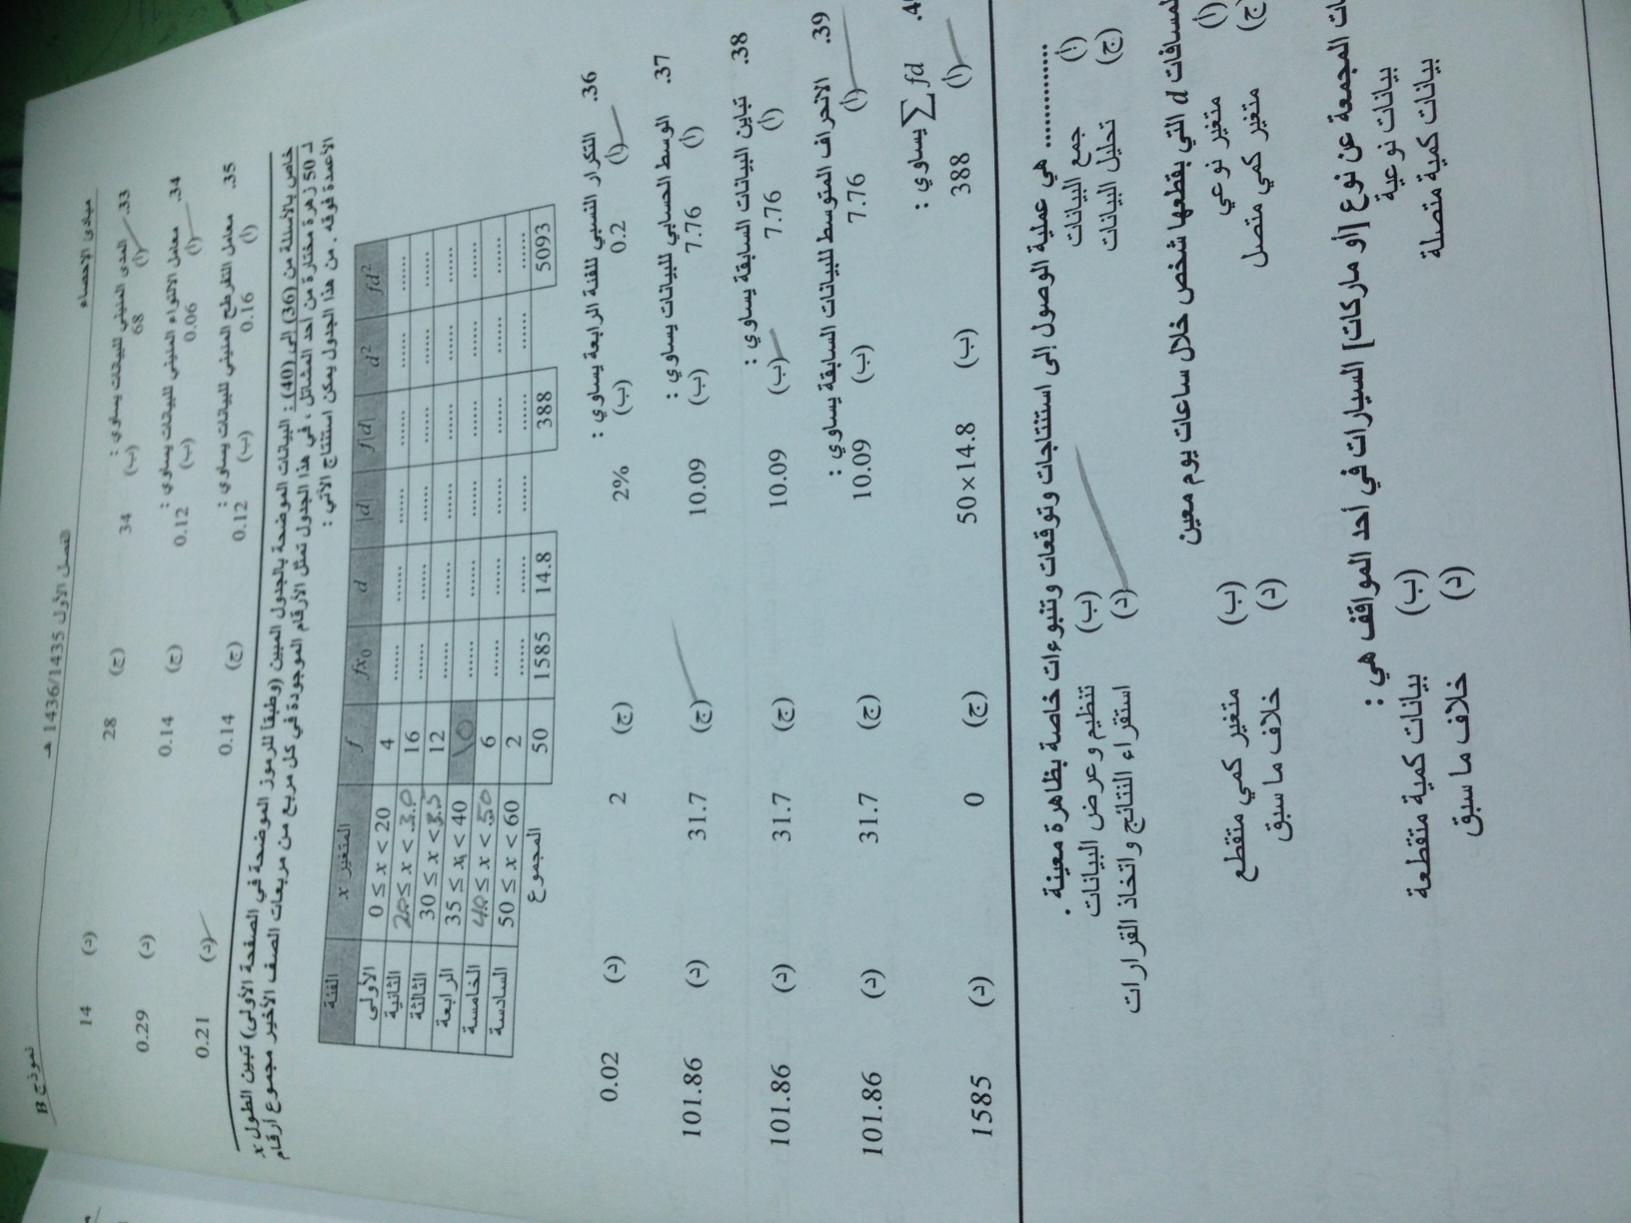 نموذج B الفصل الأول 1436/1435 هـ مبادئ الإحصاء
33. المدى المئيني للبيانات يساوي :
(أ) 68 (ب) 34 (ج) 28 (د) 14
34. معامل الالتواء المئيني للبيانات يساوي :
(أ) 0.06 (ب) 0.12 (ج) 0.14 (د) 0.29
35. معامل التفرطح المئيني للبيانات يساوي :
(أ) 0.16 (ب) 0.12 (ج) 0.14 (د) 0.21
خاص بالأسئلة من (36) إلى (40) : البيانات الموضحة بالجدول المبين (وطبقا للرموز الموضحة في الصفحة الأولى) تبين الطول x
لـ 50 زهرة مختارة من أحد المشاتل ، في هذا الجدول تمثل الأرقام الموجودة في كل مربع من مربعات الصف الأخير مجموع أرقام
الأعمدة فوقه . من هذا الجدول يمكن استنتاج الآتي :
الفئة المتغير x f fx₀ d |d| f|d| d² fd²
الأولى 0 ≤ x < 20 4 ...... ...... ...... ...... ...... ......
الثانية 20 ≤ x < 30 16 ...... ...... ...... ...... ...... ......
الثالثة 30 ≤ x < 35 12 ...... ...... ...... ...... ...... ......
الرابعة 35 ≤ x < 40 10 ...... ...... ...... ...... ...... ......
الخامسة 40 ≤ x < 50 6 ...... ...... ...... ...... ...... ......
السادسة 50 ≤ x < 60 2 ...... ...... ...... ...... ...... ......
المجموع 50 1585 14.8 388 5093
36. التكرار النسبي للفئة الرابعة يساوي :
(أ) 0.2 (ب) 2% (ج) 2 (د) 0.02
37. الوسط الحسابي للبيانات يساوي :
(أ) 7.76 (ب) 10.09 (ج) 31.7 (د) 101.86
38. تباين البيانات السابقة يساوي :
(أ) 7.76 (ب) 10.09 (ج) 31.7 (د) 101.86
39. الانحراف المتوسط للبيانات السابقة يساوي :
(أ) 7.76 (ب) 10.09 (ج) 31.7 (د) 101.86
∑ fd يساوي :
(أ) 388 (ب) 50×14.8 (ج) 0 (د) 1585
............ هي عملية الوصول إلى استنتاجات وتوقعات وتنبوءات خاصة بظاهرة معينة .
(أ) جمع البيانات (ب) تنظيم وعرض البيانات
(ج) تحليل البيانات (د) استقراء النتائج واتخاذ القرارات
المسافات d التي يقطعها شخص خلال ساعات يوم معين
(أ) متغير نوعي (ب) متغير كمي متقطع
(ج) متغير كمي متصل (د) خلاف ما سبق
المجمعة عن نوع [أو ماركات] السيارات في أحد المواقف هي :
بيانات نوعية (ب) بيانات كمية متقطعة
بيانات كمية متصلة (د) خلاف ما سبق